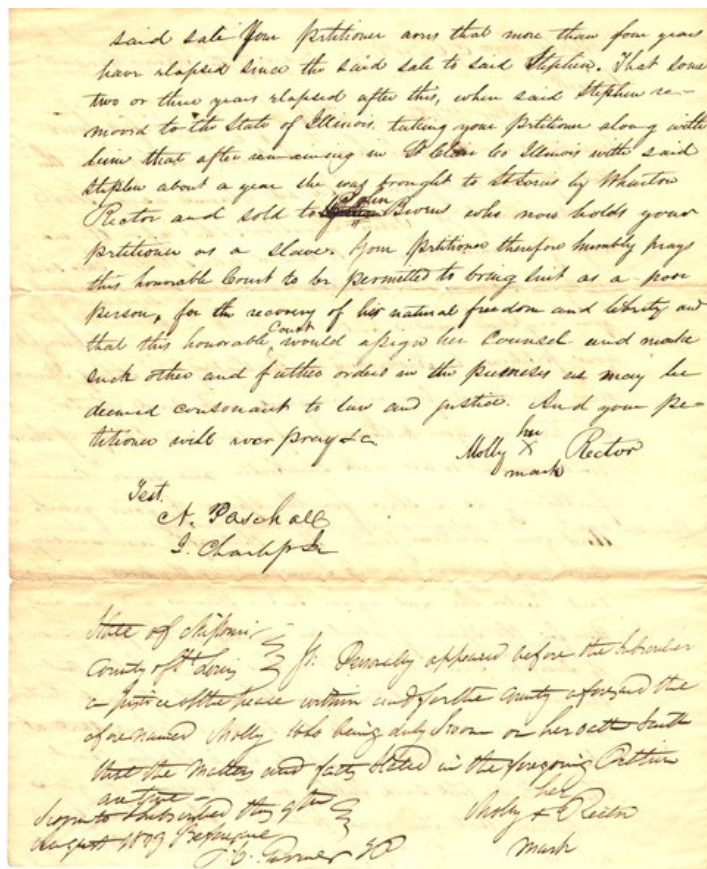 said sale Your Petitioner avers that more than four years
have elapsed since the said sale to said Stephen. That some
two or three years elapsed after this, when said Stephen re-
moved to the State of Illinois, taking your petitioner along with
him that after remaining in St Clair Co Illinois with said
Stephen about a year she was brought to St Louis by Wharton
Rector and sold to John Bivens who now holds your
petitioner as a slave. Your petitioner therefore humbly prays
this honorable Court to be permitted to bring suit as a poor
person, for the recovery of her natural freedom and liberty and
that this honorable Court would assign her Counsel and make
such other and further orders in the premises as may be
deemed consonant to law and justice. And your pe-
titioner will ever pray &c
Molly her X mark Rector
Test.
N. Paschall
J. Charless Jr
State of Missouri
County of St Louis } Ss. Personally appeared before the subscriber
a Justice of the peace within and for the County aforesaid the
afore named Molly who being duly sworn on her oath saith
that the matters and facts stated in the foregoing Petition
are true
Sworn to & subscribed this 9th
august 18 Before me
Molly her X mark Rector
JP